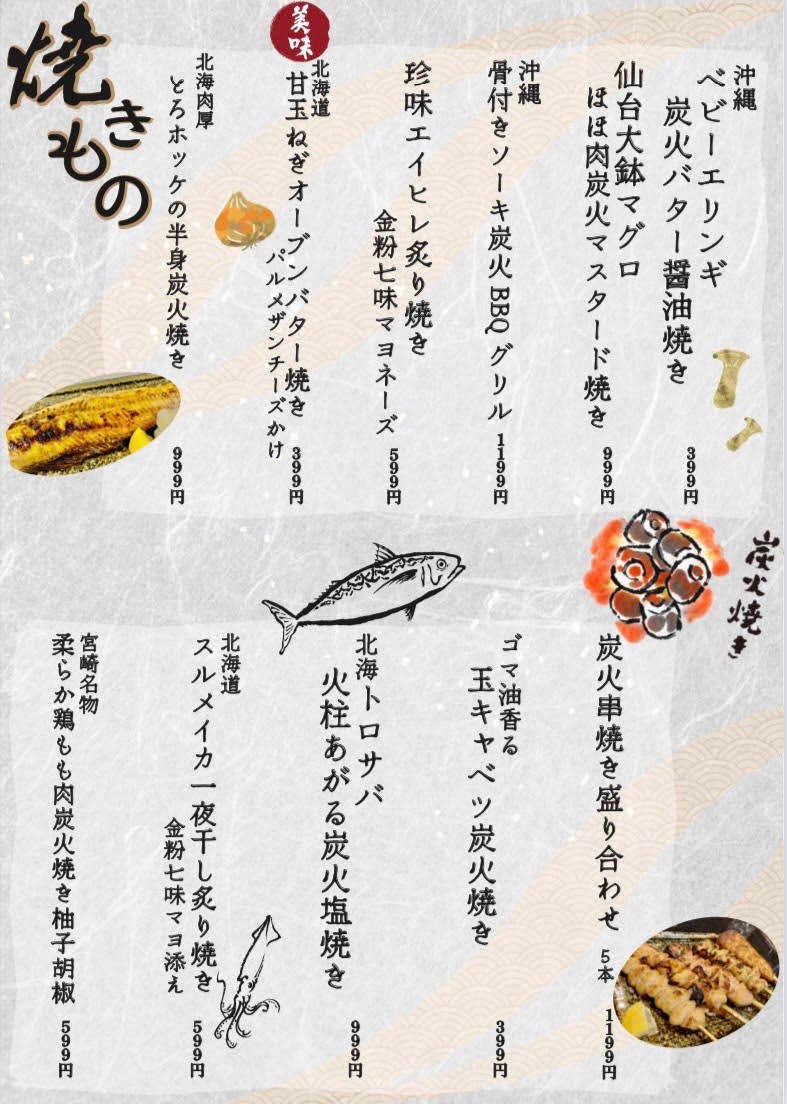 焼きもの
沖縄
ベビーエリンギ
炭火バター醤油焼き
399円
仙台大鉢マグロ
ほほ肉炭火マスタード焼き
999円
沖縄
骨付きソーキ炭火BBQグリル
1199円
珍味エイヒレ炙り焼き
金粉七味マヨネーズ
599円
美味
北海道
甘玉ねぎオーブンバター焼き
パルメザンチーズかけ
399円
北海肉厚
とろホッケの半身炭火焼き
999円
炭火焼き
炭火串焼き盛り合わせ 5本
1199円
ゴマ油香る
玉キャベツ炭火焼き
399円
北海トロサバ
火柱あがる炭火塩焼き
999円
北海道
スルメイカ一夜干し炙り焼き
金粉七味マヨ添え
599円
宮崎名物
柔らか鶏もも肉炭火焼き柚子胡椒
599円